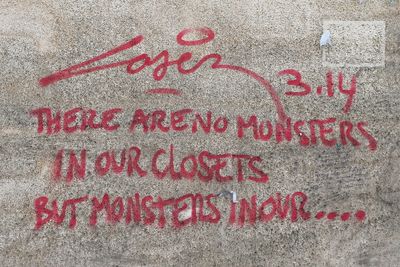 Loser 3.14
THERE ARE NO MONSTERS
IN OUR CLOSETS
BUT MONSTERS IN OUR....